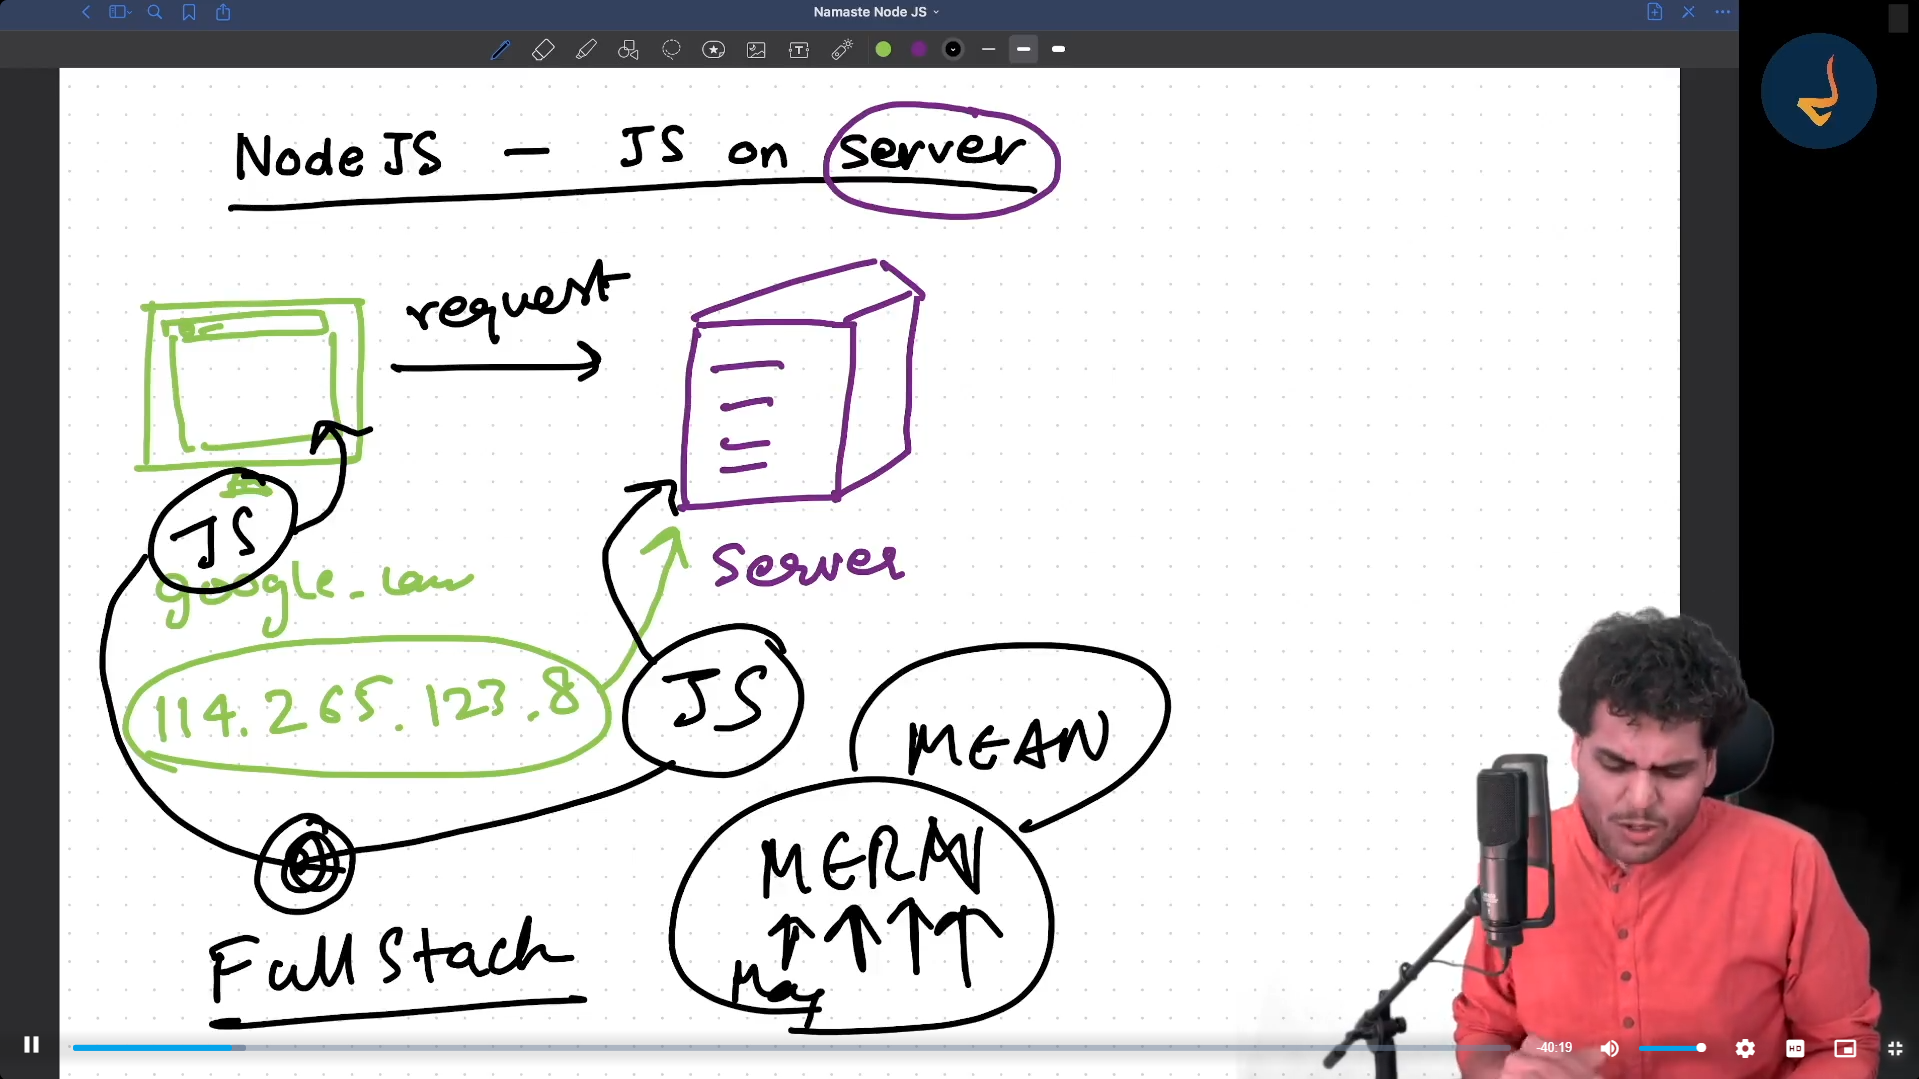 Namaste Node JS
Node JS - JS on server
request
JS
google.com
Server
114.265.123.8
JS
MEAN
MERN
Full Stack
-40:19
HD